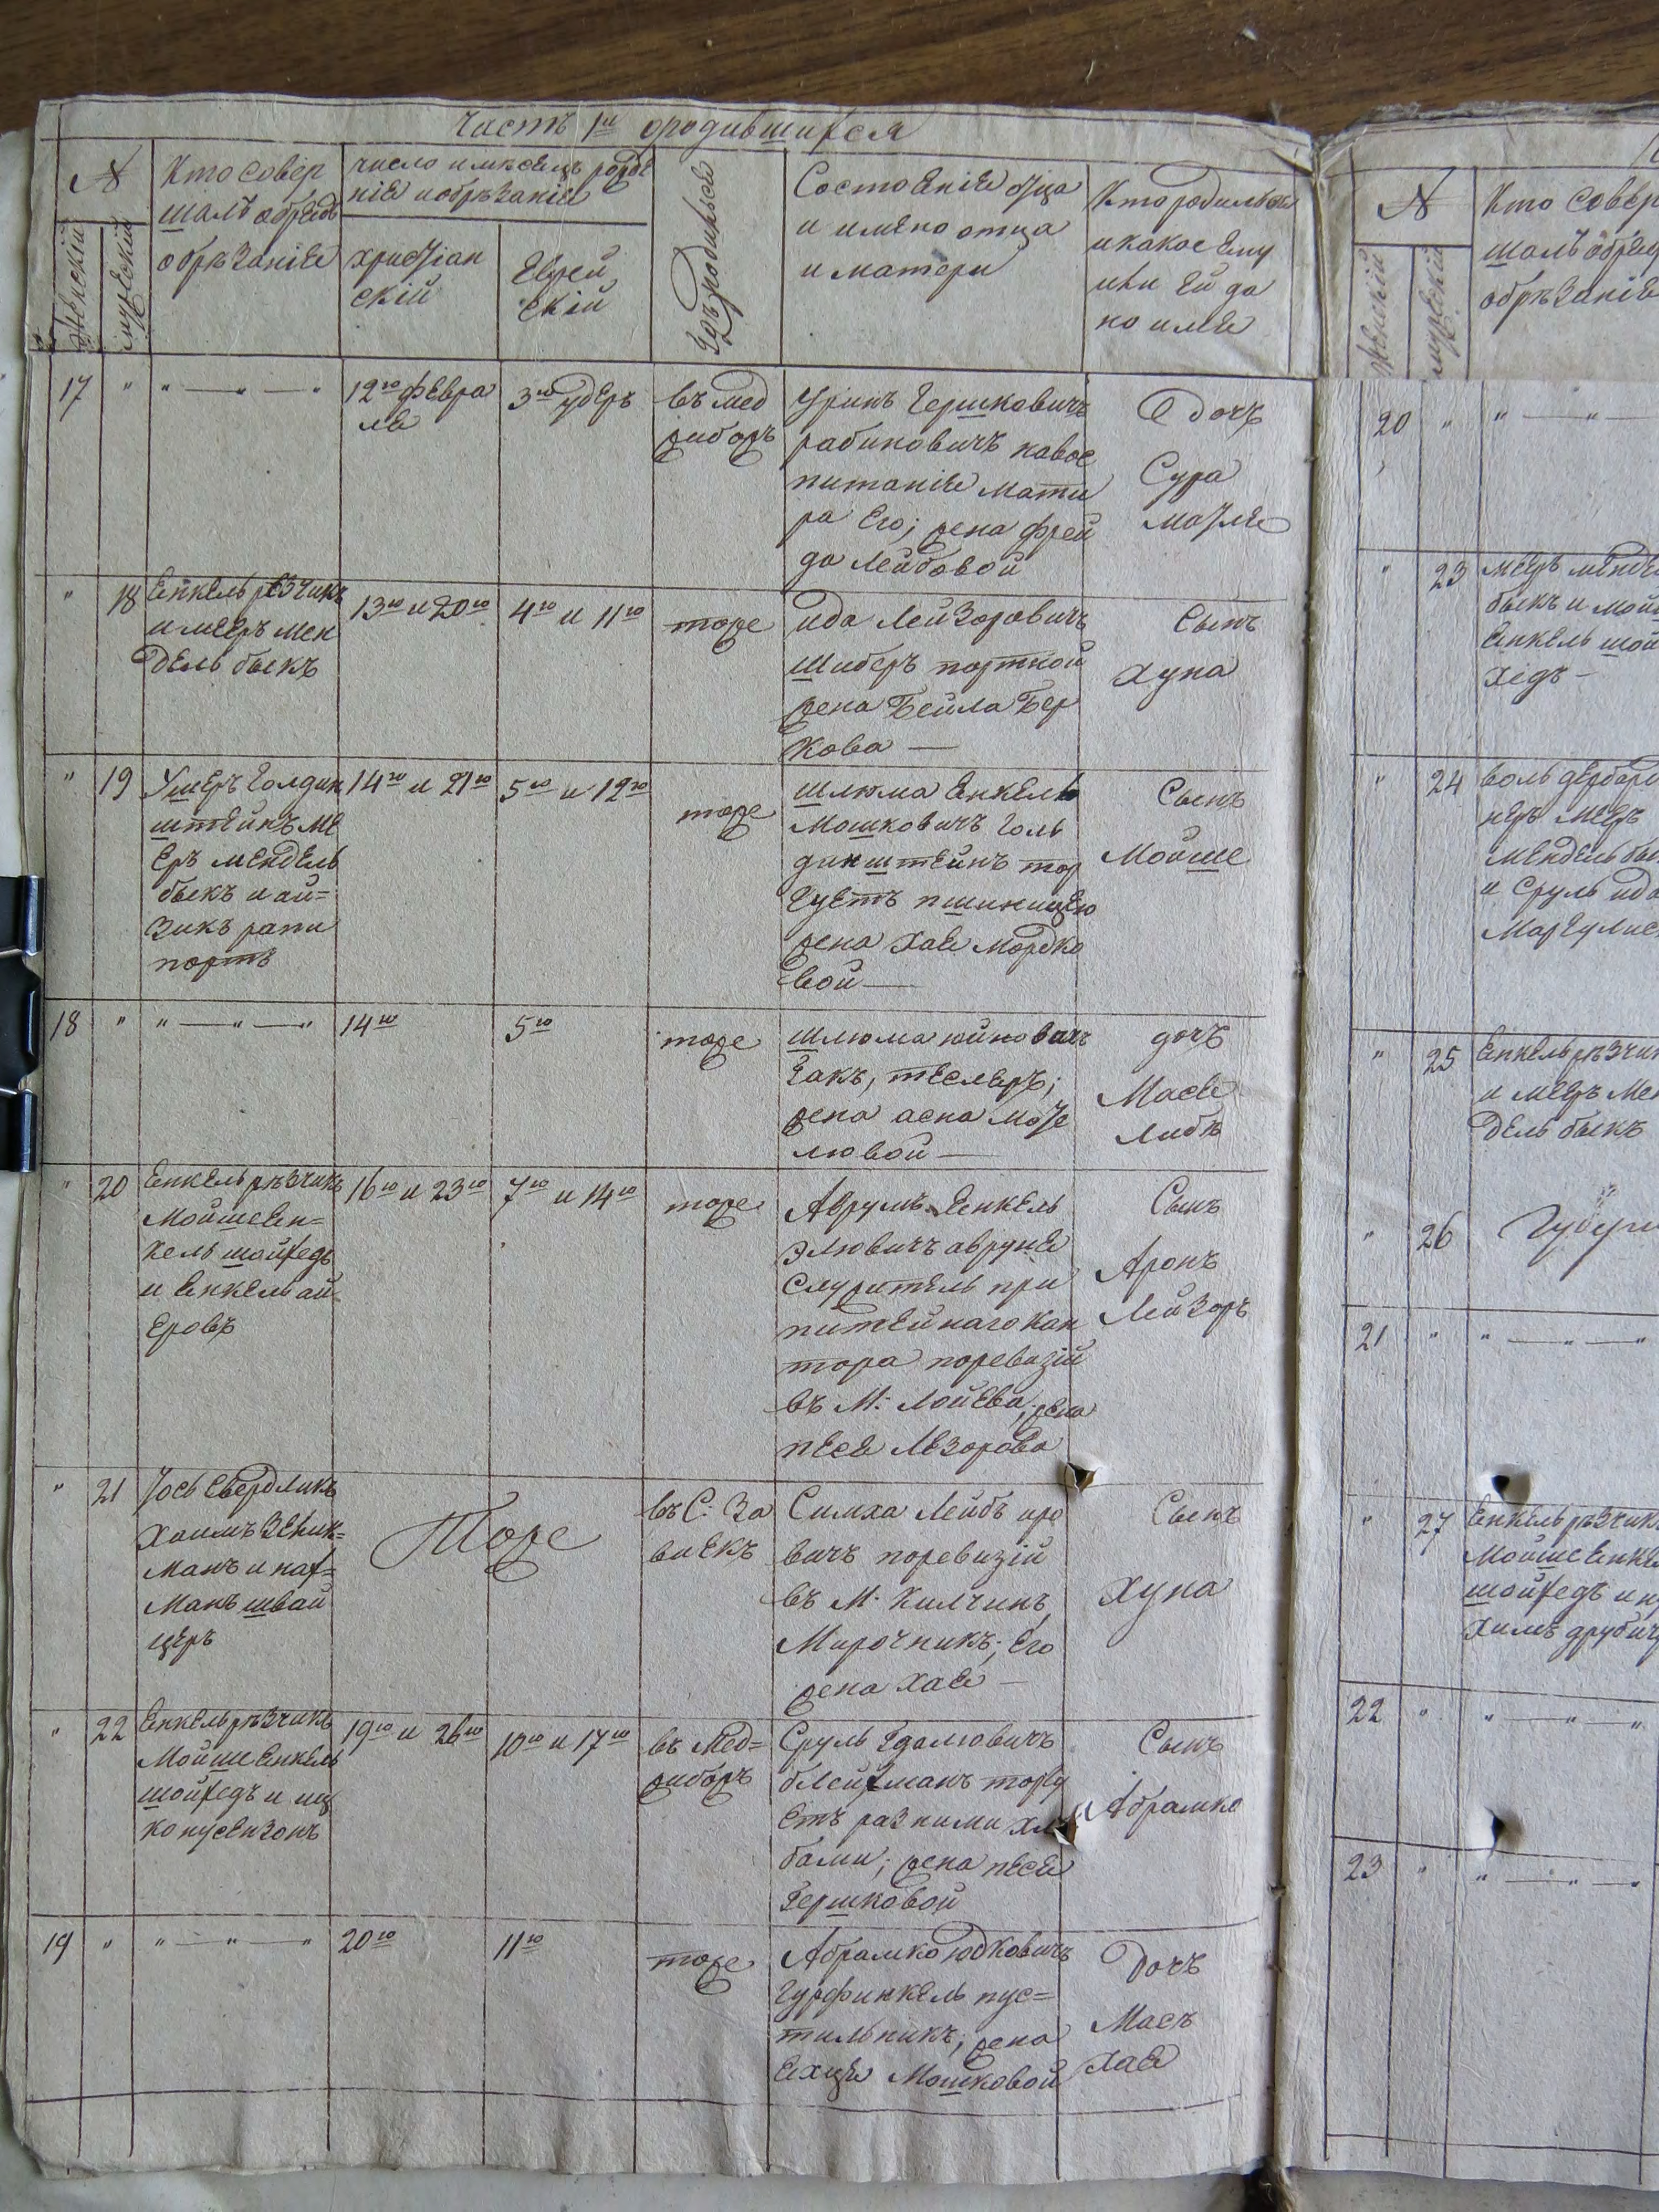 Часть 1я ородившихся
№
Женскій
мужескій
Кто совер
шалъ обрядъ
обрѣзаніе
число имѣсецъ рожде
ніе иобрѣзаніе
христіан
скій
Еврей
скій
Гдѣ родился
Состоеніе отца
и имено отца
и матери
Кто родился
икакое Ему
или Ей да
но име
17 " " — " — " 12го февра
ле
3го удеръ
въ Мед
жибожъ
Уринъ Гершковичъ
рабиновичъ навос
питаніе мати
ра Его; жена фрей
да Лейбовой
Дочь
Сура
Матле
" 18 Енкель резчикъ
и меэръ мен
дель быкъ
13го и 20го 4го и 11го тоже
ида Лейзоровичъ
шиберъ портной
жена Бейла Бер
кова —
Сынъ
Хуна
" 19 Ушеръ Голдин
штейнъ ме
еръ мендель
быкъ и ай=
зикъ рапи
портъ
14го и 21го 5го и 12го тоже
шлюма Енкель
Мошковичъ Голь
динштейнъ тор
гуетъ пшиницею
жена Хае Мордко
вой —
Сынъ
Мойше
18 " " — " — " 14го 5го тоже
шлюма юйновичъ
Гакъ, теслеръ;
жена асна моте
любой —
дочь
Масе
Либѣ
" 20 Енкель рѣзчикъ
Мойше Ен=
кель шойхедъ
и Енкель ай
еровъ
16го и 23го 7го и 14го тоже
Аврумъ Енкель
Элювичъ аврунё
служитель при
питейнаго кан
тора поревизій
въ М. Лойева, жена
песе Лезорова
Сынъ
Аронъ
Лейзоръ
" 21 Йось Свердликъ
Хаимъ
манъ и нах=
манъ швай
церъ
Тоже
въ С. За
виекъ
Симха Лейбъ иро
вичъ поревизій
въ М. Хилчинъ,
Мирочникъ; Его
жена Хае —
Сынъ
Хуна
" 22 Енкель рѣзчикъ
Мойше Енкель
шойхедъ и иц
ко нусензонъ
19го и 26го 10го и 17го въ Мед=
жибожъ
Сруль Гдалювичъ
блейхманъ торгу
етъ разними хлѣ
бами; жена песе
Гершковой
Сынъ
Абрамко
19 " " — " — " 20го 11го тоже
Абрамко юдковичъ
Гурфинкель пус=
тильникъ, жена
Ехце Мошковой
Дочь
Масъ
Хае
№
Женскій
мужескій
Кто совер
шалъ обряд
обрѣзаніе
20 " " — "
" 23 меэръ менде
быкъ и мой
Енкель шой
хедъ —
" 24 воль дербари
неръ меэръ
Мендель бы
и Сруль ида
Маргулис
" 25 Енкель рѣзчик
и меэръ Мен
дель быкъ
" 26
21 " " — " — "
" 27 Енкель рѣзчик
Мойше Енке
шойхедъ и
22 " " — " — "
23 " " — " — "